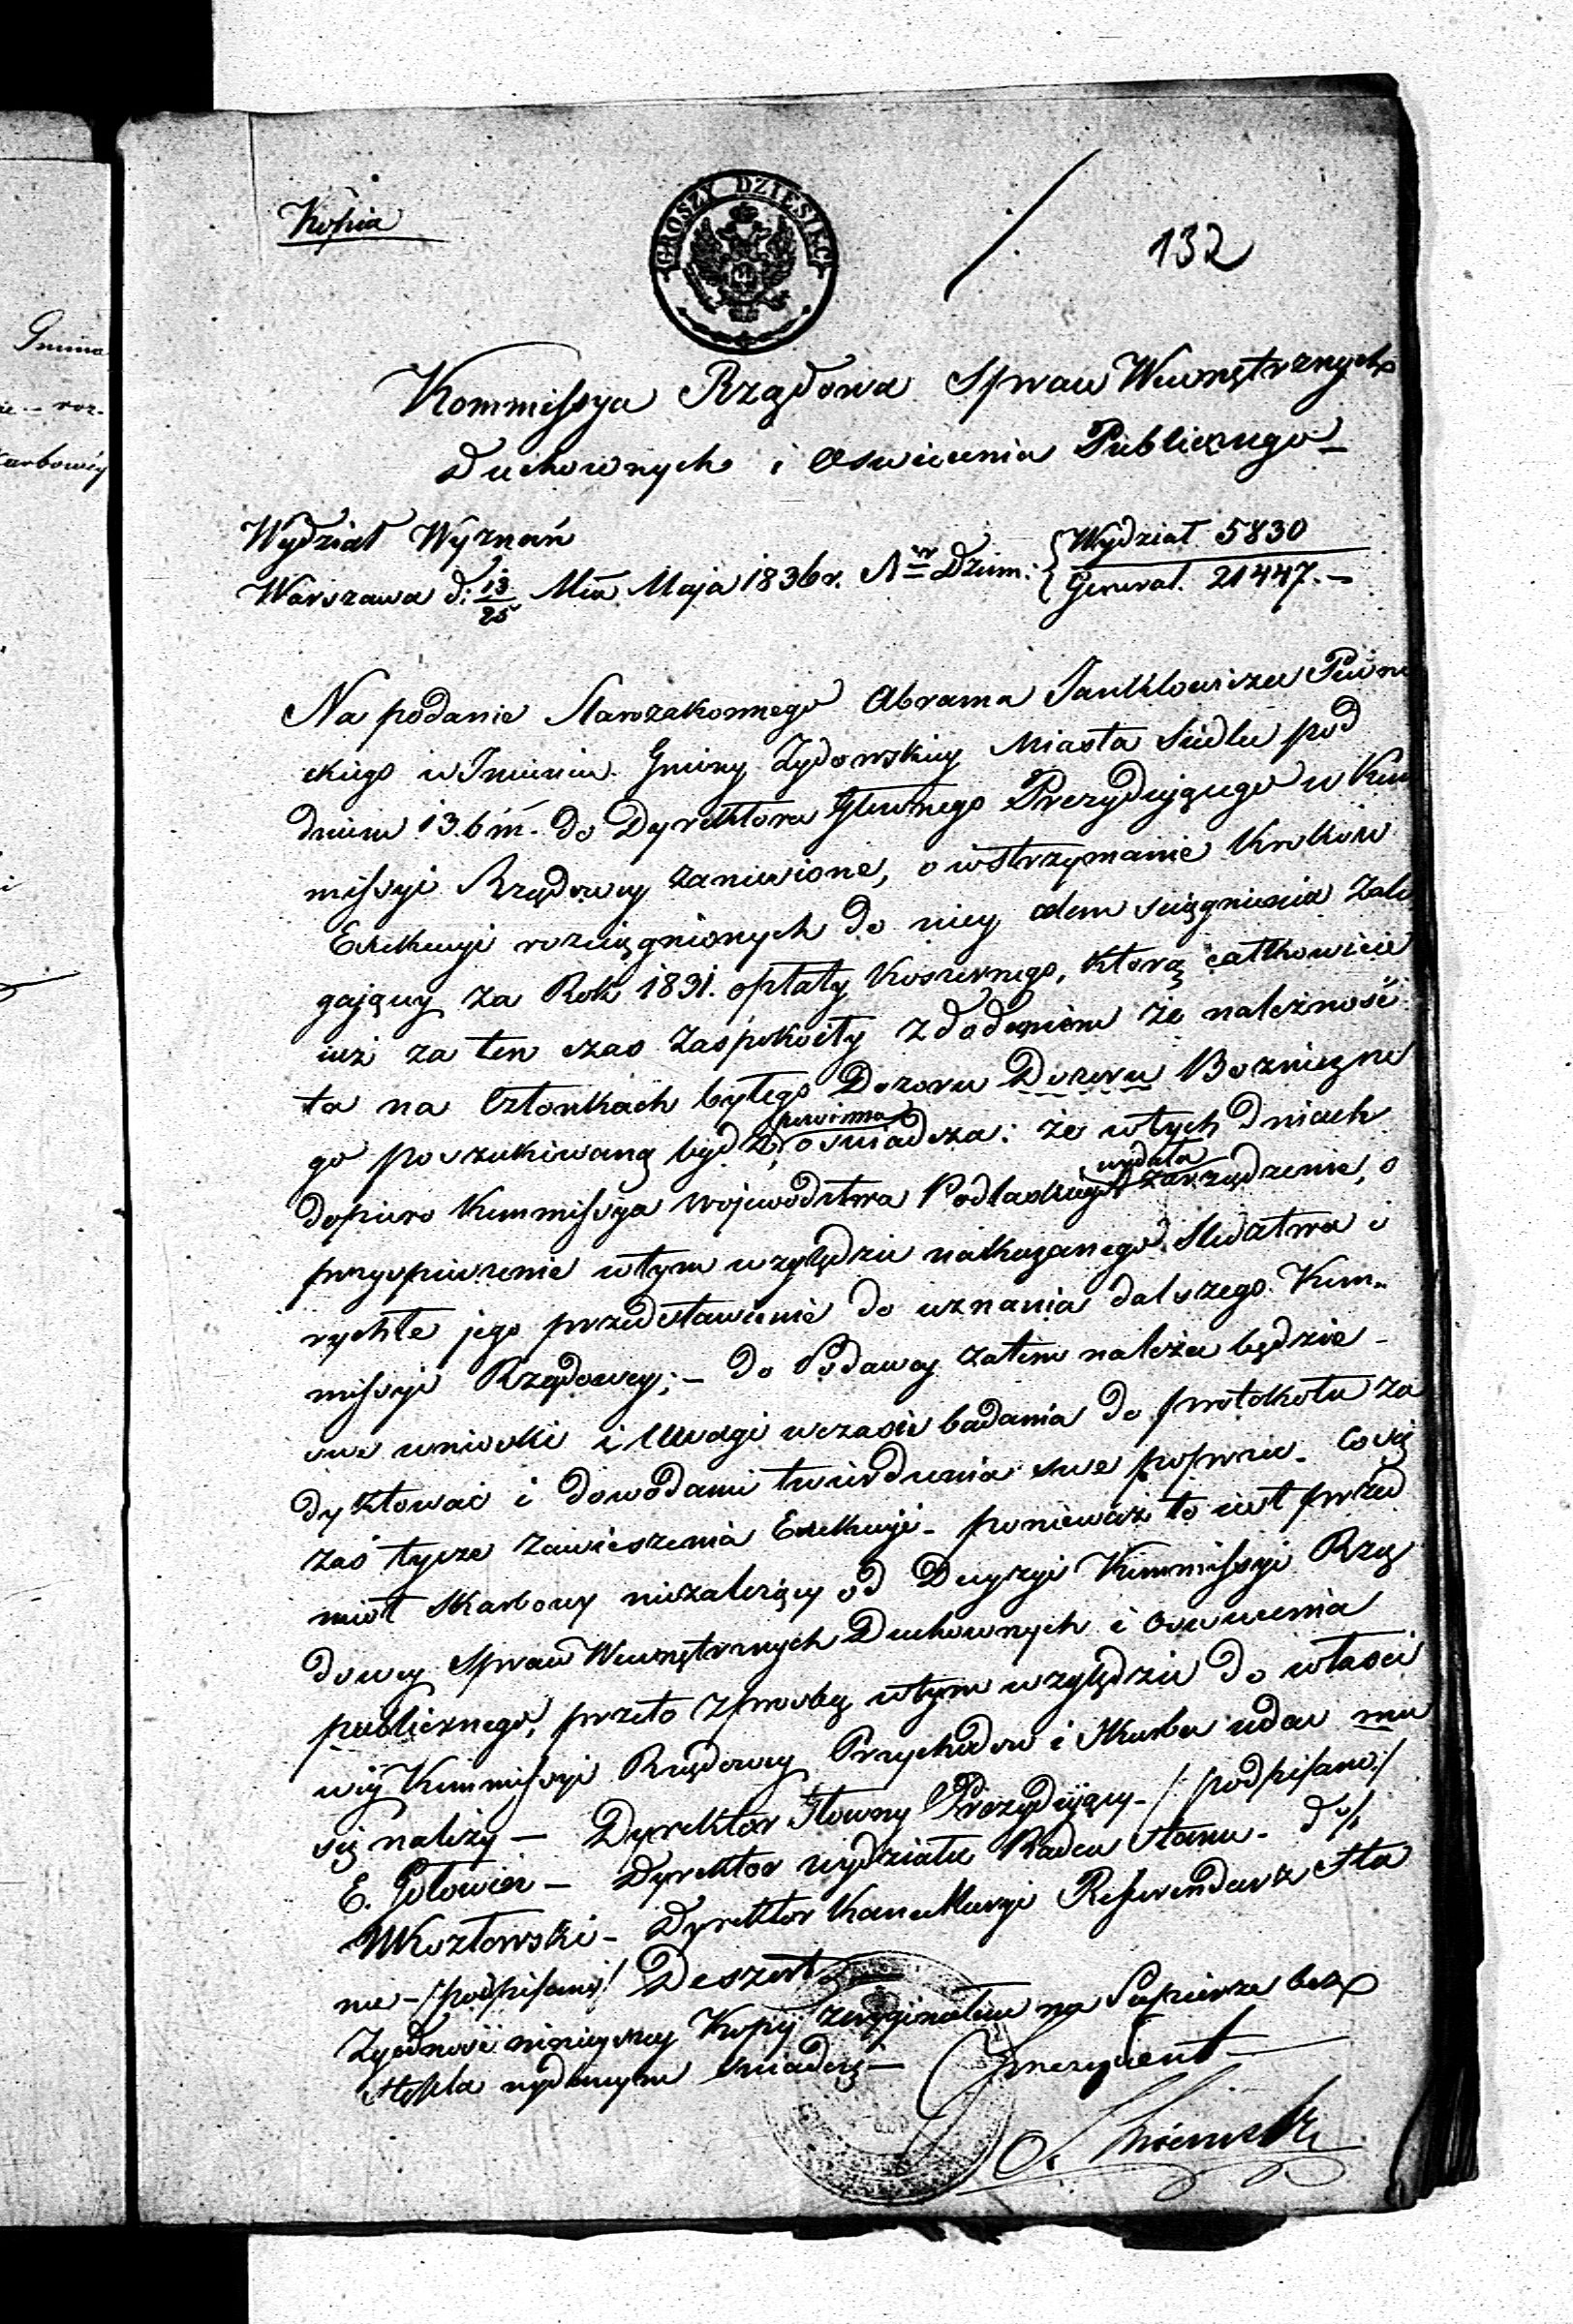 Gmina
ie - roz-
karbowéy
Kopia
GROSZY DZIESIĘĆ
132
Kommissya Rządowa Spraw Wewnętrznych
Duchownych i Oswiecenia Publicznego
Wydział Wyznań
Warszawa d: 13/25 Mca Maja 1836 r. Nr Dzien: { Wydział 5830
General. 21447. -
Na podanie Starozakonnego Abrama Jankklowicza
ckiego w Imieniu Gminy Żydowskiey Miasta Siedlec pod
dniem 13. b m. do Dyrektora Głownego Prezydującego w Kom
missyi Rządowey zaniesione, o wstrzymanie Krokow
Exekucyi rozciągnionych do niey celem sciągnienia zale
gającey za Rok 1831. opłaty Koszernego, którą całkowicie
iuż za ten czas zaspokoiły z dodaniem że należność
ta na Członkach byłego Dozoru Dozoru Bozniczne
go poszukiwaną bydź powinna oswiadcza: że w tych dniach
dopiero Kommissya Wojewodztwa Podlaskiego wydała zarządzenie, o
przyspieszenie w tym względzie nakazanego Sledztwa i
rychłe jego przedstawienie do uznania dalszego Kom-
missyi Rządowey; - do Podawcy zatem należeć będzie -
swe wnioski i Uwagi w czasie badania do protokołu za
dyktować i dowodami twierdzenia swe poprzeć - Co się
zaś tycze zawieszenia Exekucyi - ponieważ to iest przed
miot skarbowy niezależący od Decyzyi Kommissyi Rzą
dowey Spraw Wewnętrznych Duchownych i Oswiecenia
publicznego, przeto z prosbą w tym względzie do właści
wéy Kommissyi Rządowey Przychodow i Skarbu udać mu
się należy - Dyrektor Głowny Prezydujący - /: podpisano :/
E. Gołowin - Dyrektor wydziału Radca Stanu -
Kozłowski - Dyrektor Kancellaryi Referendarz Sta
nu - /: podpisano :/ Deszert
Zgodność ninieyszey Kopij z oryginałem na Papierze bez
stępla wydanym swiadczę -
Prezydent